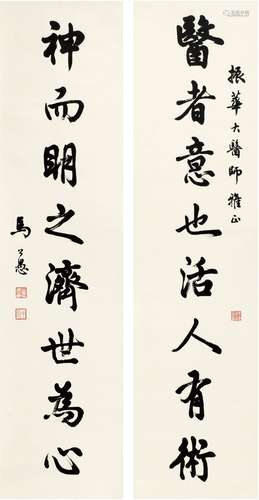 振華大醫師雅正
醫者意也活人有術
神而明之濟世為心
馬公愚